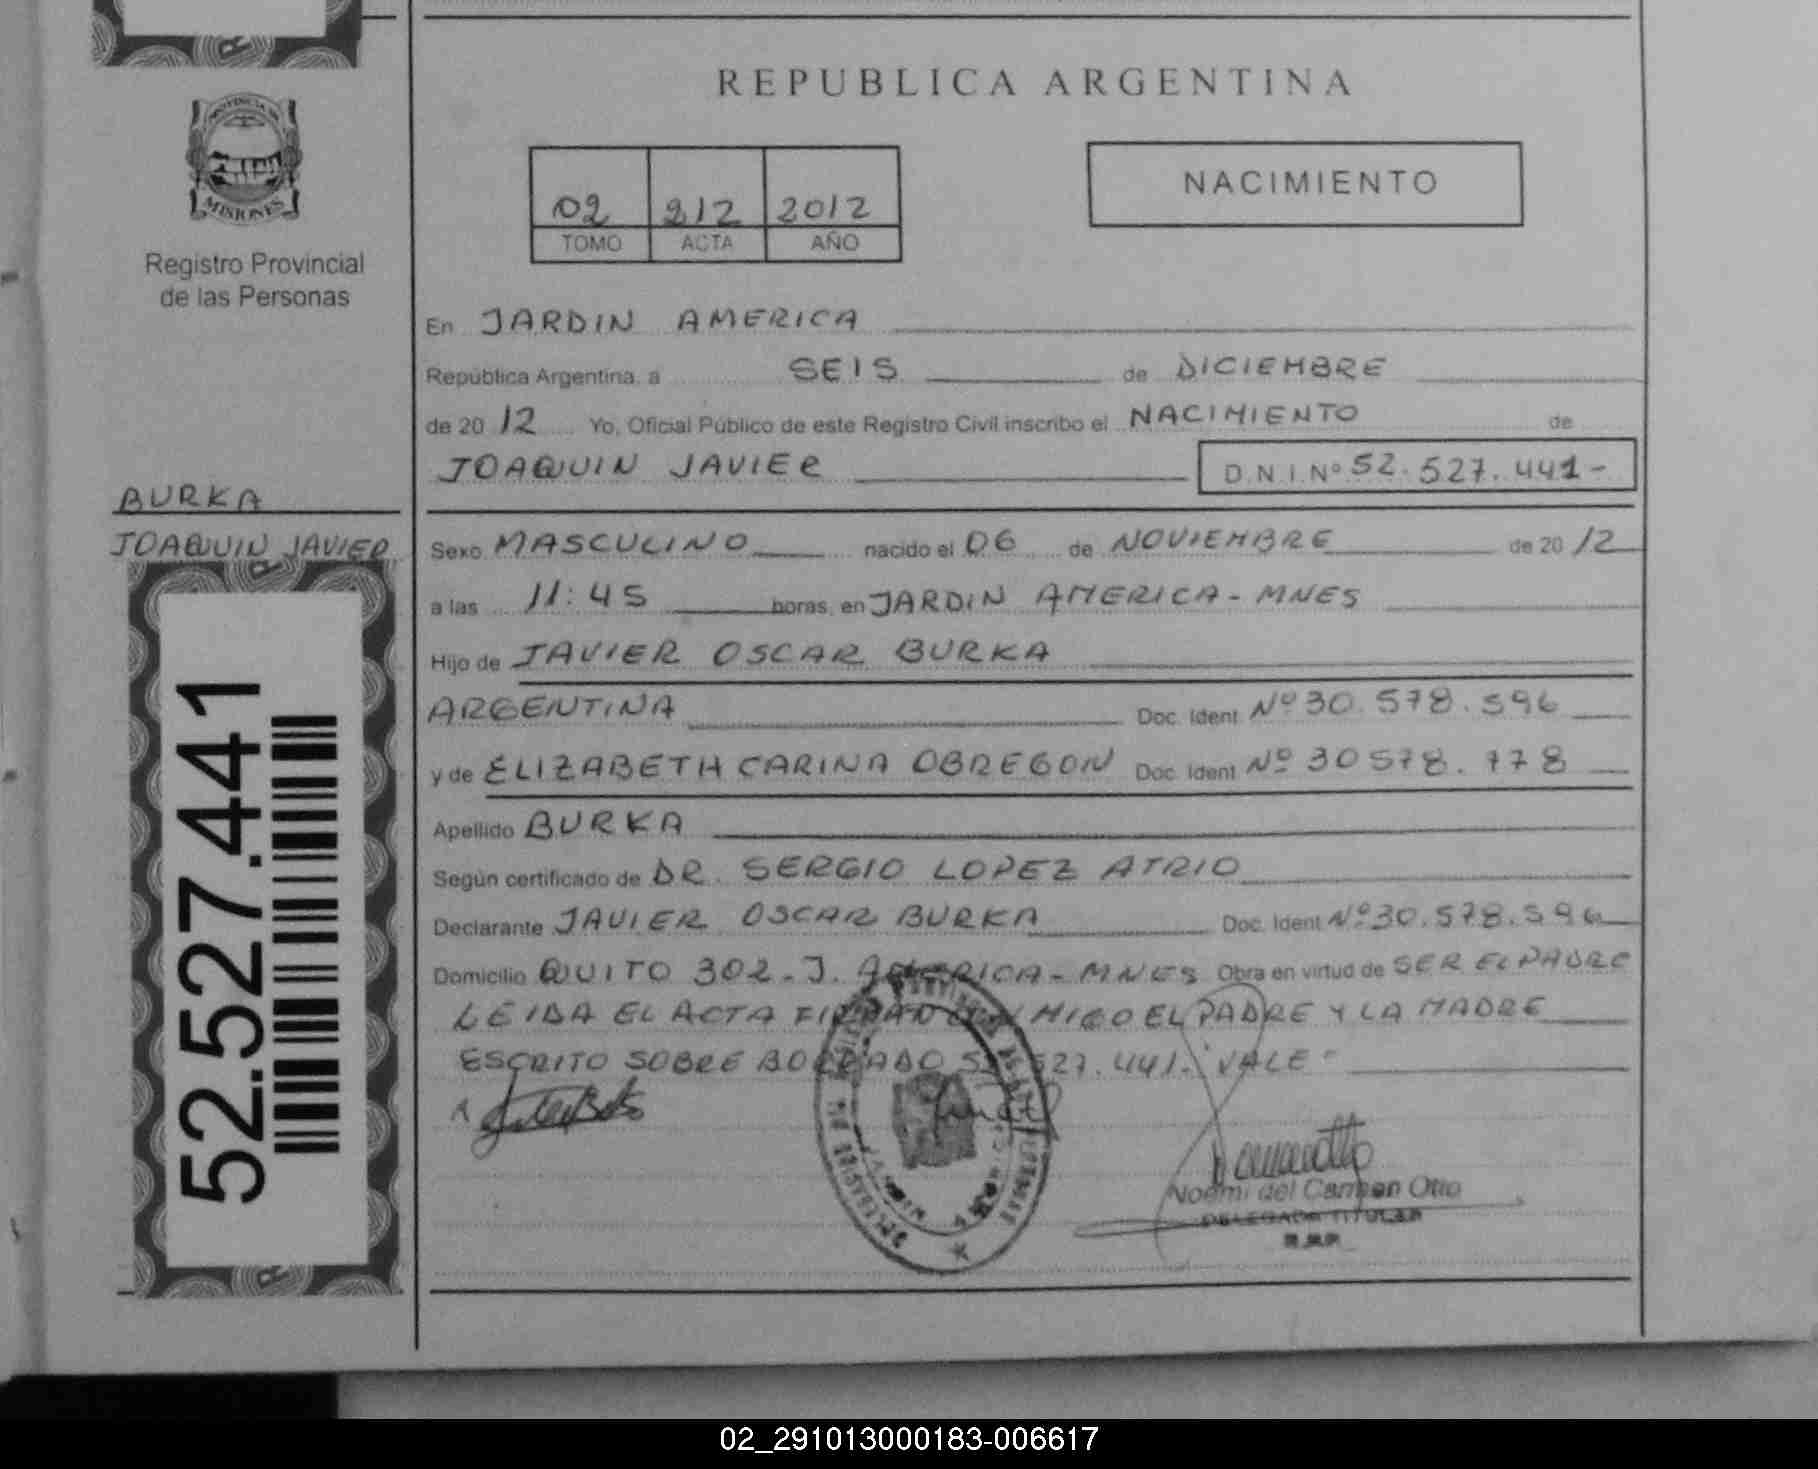 REPUBLICA ARGENTINA
PROVINCIA DE
MISIONES
Registro Provincial
de las Personas
02 212 2012
TOMO ACTA AÑO
NACIMIENTO
En JARDIN AMERICA
República Argentina, a SEIS de DICIEMBRE
de 20 12 Yo, Oficial Público de este Registro Civil inscribo el NACIMIENTO de
JOAQUIN JAVIER D.N.I.Nº 52.527.441-
BURKA
JOAQUIN JAVIER
52.527.441
Sexo MASCULINO nacido el 06 de NOVIEMBRE de 20 12
a las 11:45 horas, en JARDIN AMERICA - MNES
Hijo de JAVIER OSCAR BURKA
ARGENTINA Doc. Ident Nº 30.578.596
y de ELIZABETH CARINA OBREGON Doc. Ident Nº 30578.778
Apellido BURKA
Según certificado de DR. SERGIO LOPEZ ATRIO
Declarante JAVIER OSCAR BURKA Doc. Ident Nº 30.578.596
Domicilio QUITO 302 - J. AMERICA - MNES Obra en virtud de SER EL PADRE
LEIDA EL ACTA FIRMAN CONMIGO EL PADRE Y LA MADRE
ESCRITO SOBRE BORRADO 52.527.441. VALE
Noemi del Carmen Otto
DELEGADA TITULAR
R.P.P.
02_291013000183-006617